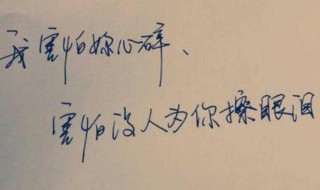 我害怕你心碎、
害怕没人为你擦眼泪